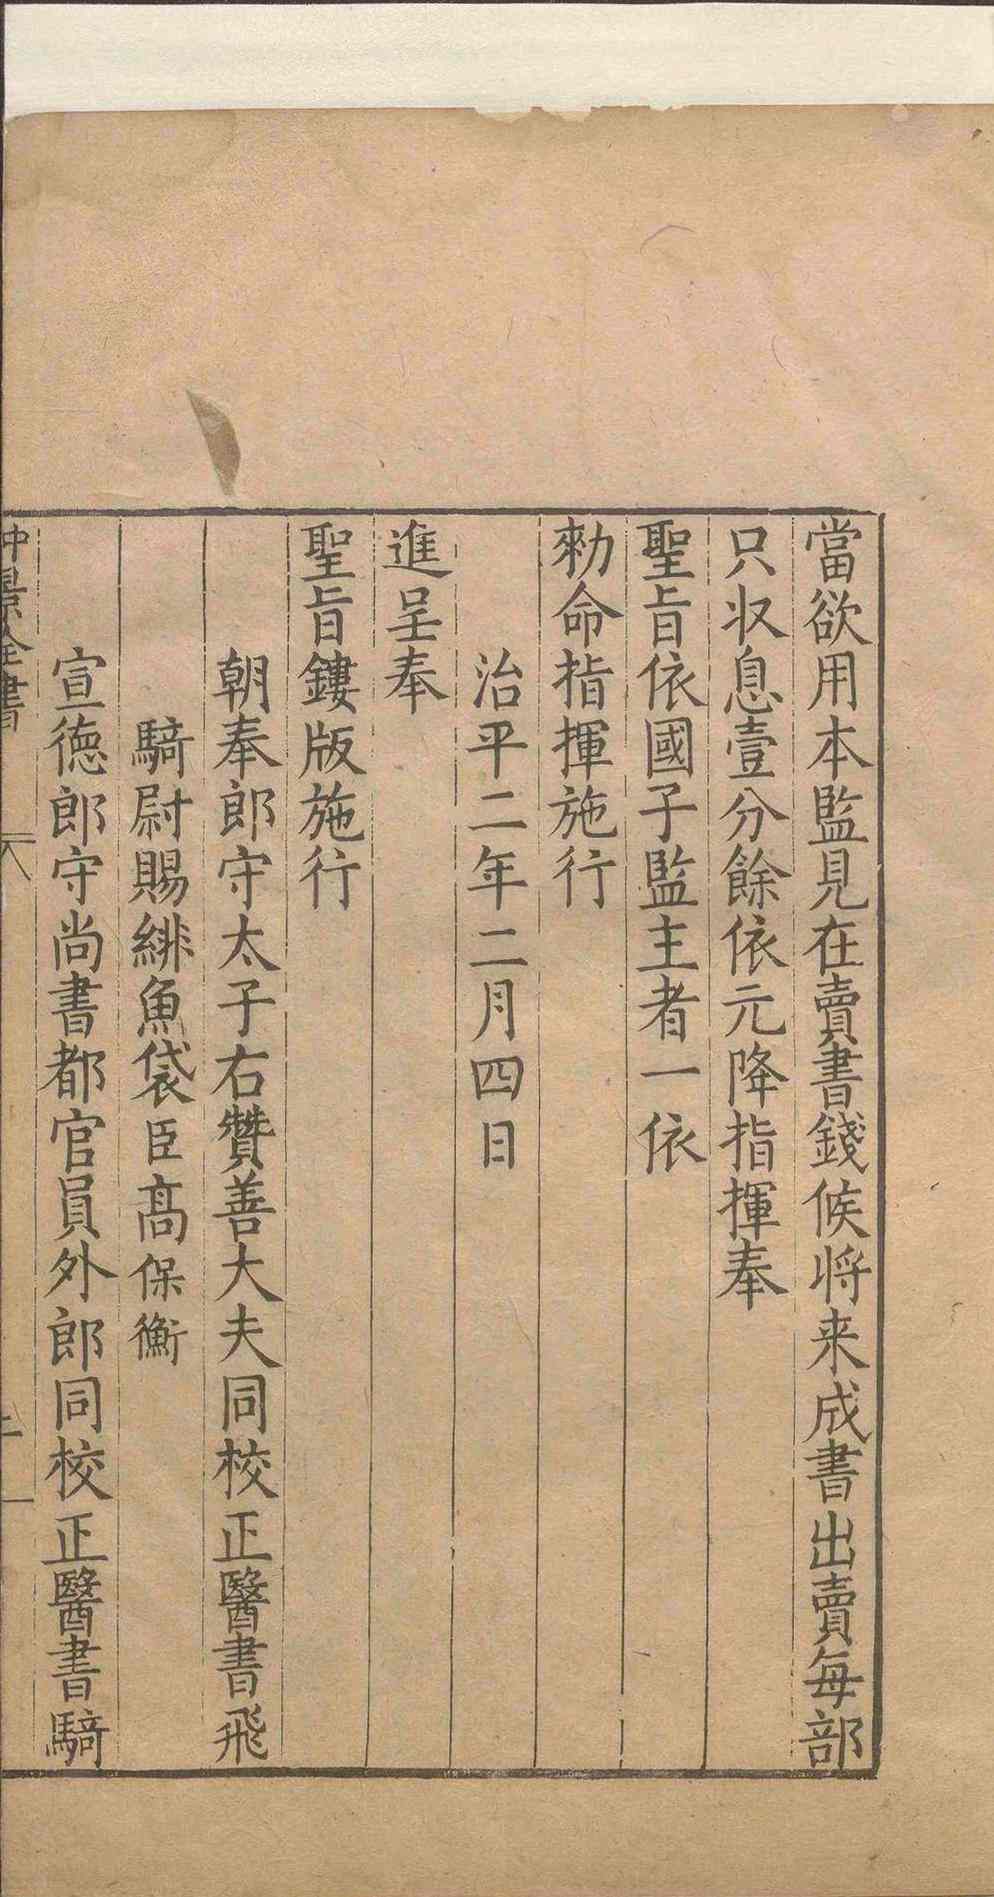 當欲用本監見在賣書錢候將来成書出賣每部
只收息壹分餘依元降指揮奉
聖旨依國子監主者一依
勑命指揮施行
治平二年二月四日
進呈奉
聖旨鏤版施行
朝奉郎守太子右贊善大夫同校正醫書飛
騎尉賜緋魚袋臣高保衡
宣德郎守尚書都官員外郎同校正醫書騎
仲景全書